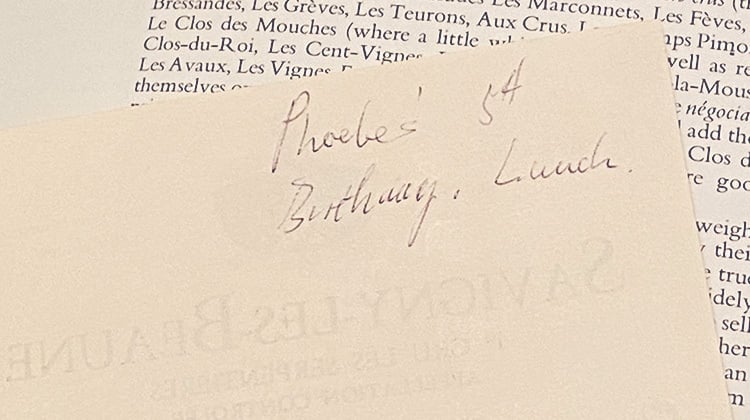 Bressandes, Les Grèves, Les Teurons, Aux Crus
Les Marconnets, Les Fèves,
Le Clos des Mouches (where a little
Pimo
Clos-du-Roi, Les Cent-Vignes
well as re
Les Avaux, Les Vignes
la-Mous
themselves
négocia
add the
Clos d
re goo
Phoebe's 5th
Birthday. Lunch.
weigh
their
true
idely
sell
her
an
SAVIGNY-LES-BEAUNE
1er CRU LES SERPENTIERES
APPELLATION CONTROLEE